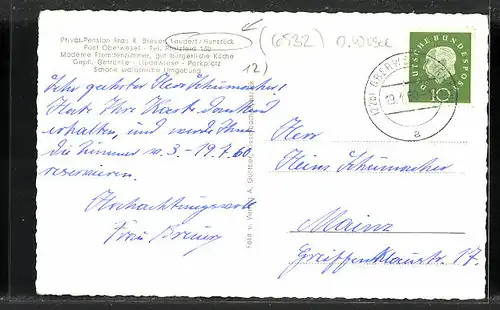 Privat-Pension Frau R. Breuer, Laudert/Hunsrück
Post Oberwesel - Tel. Pfalzfeld 160
Moderne Fremdenzimmer, gut bürgerliche Küche
Gepfl. Getränke - Liegewiese - Parkplatz
Schöne waldreiche Umgebung
(6532) O.Wesel
12)
DEUTSCHE BUNDESPOST
10
(22b) OBERWESEL
a
Sehr geehrter Herr Schumacher,
Habe Ihre Karte dankend
erhalten, und werde Ihnen
die Zimmer v. 3.-19.7.60
reservieren.
Hochachtungsvoll
Frau Breuer
Foto u. Verlag A.
Herr
Heinz Schumacher
Mainz
Greiffenklaustr. 17.